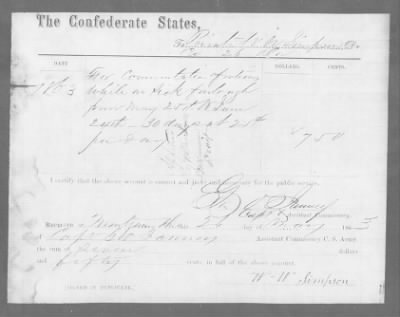 The Confederate States,
To Private W. W. Simpson Dr.
DATE DOLLARS CENTS.
1863 For Commutation of rations
while on sick furlough
from May 25th to June
24th — 30 days at 25cts
per day 7 50
I certify that the above account is correct and just; and
for the public service.
Capt & Assistant Commissary.
RECEIVED at Montgomery this 25 day of May 186 3
of Capt Assistant Commissary C. S. Army
the sum of seven dollars
and fifty cents, in full of the above account.
W. W. Simpson
[SIGNED IN DUPLICATE.]